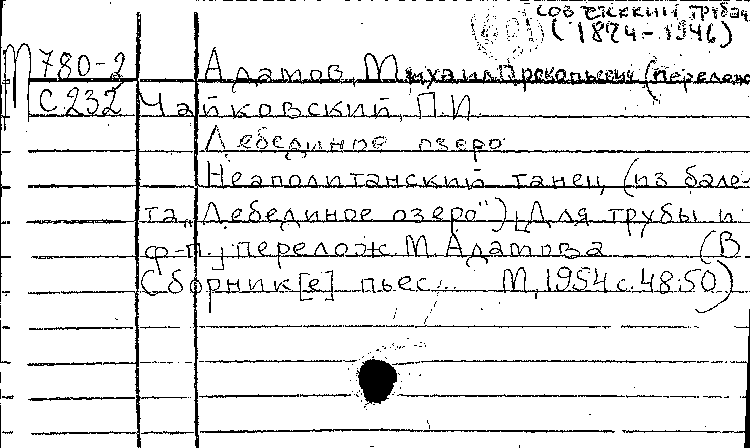 советский трубач
(1894-1946)
М780-2 Адамов, Михаил Прокопьевич (перелож
С232 Чайковский, П.И.
Лебединое озеро
Неаполитанский танец, (из бале-
та „Лебединое озеро"), Для трубы и
ф-п.; перелож. М. Адамова (В
Сборник[е] пьес... М, 1954 с. 48-50)